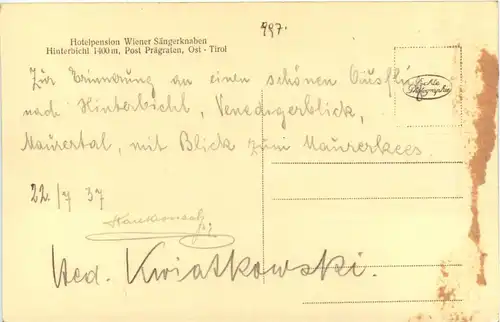 497.
Hotelpension Wiener Sängerknaben
Hinterbichl 1400 m, Post Prägraten, Ost - Tirol
Echte
Photographie
Zur Erinnerung an einen schönen Ausflug
nach Hinterbichl, Venedigerblick,
Maurertal, mit Blick zum Maurerkees.
22./7 37
Kwiatkowski.